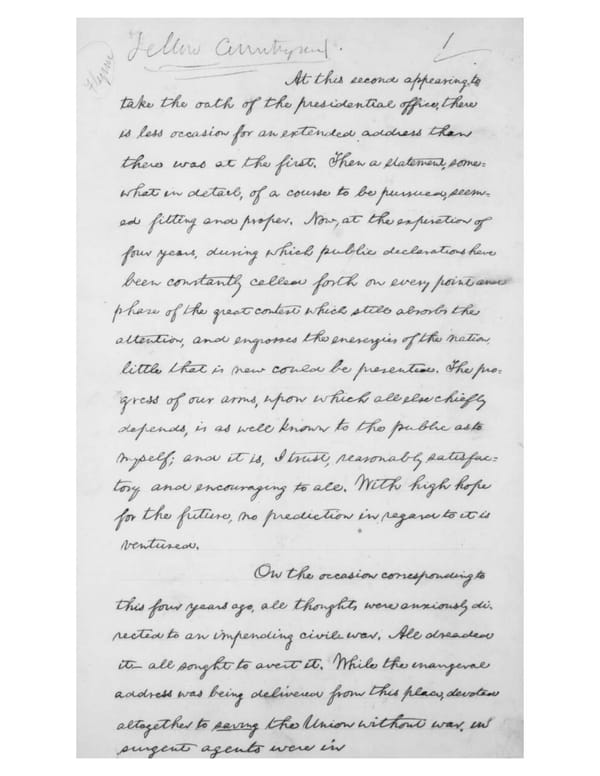 Fellow Countrymen.
1
At this second appearing to
take the oath of the presidential office, there
is less occasion for an extended address than
there was at the first. Then a statement, some=
what in detail, of a course to be pursued, seem=
ed fitting and proper. Now, at the expiration of
four years, during which public declarations have
been constantly called forth on every point and
phase of the great contest which still absorbs the
attention, and engrosses the enerergies of the nation,
little that is new could be presented. The pro=
gress of our arms, upon which all else chiefly
depends, is as well known to the public as to
myself; and it is, I trust, reasonably satisfac=
tory and encouraging to all. With high hope
for the future, no prediction in regard to it is
ventured.
On the occasion corresponding to
this four years ago, all thoughts were anxiously di=
rected to an impending civil war. All dreaded
it— all sought to avert it. While the inaugeral
address was being delivered from this place, devoted
altogether to saving the Union without war, in
surgent agents were in